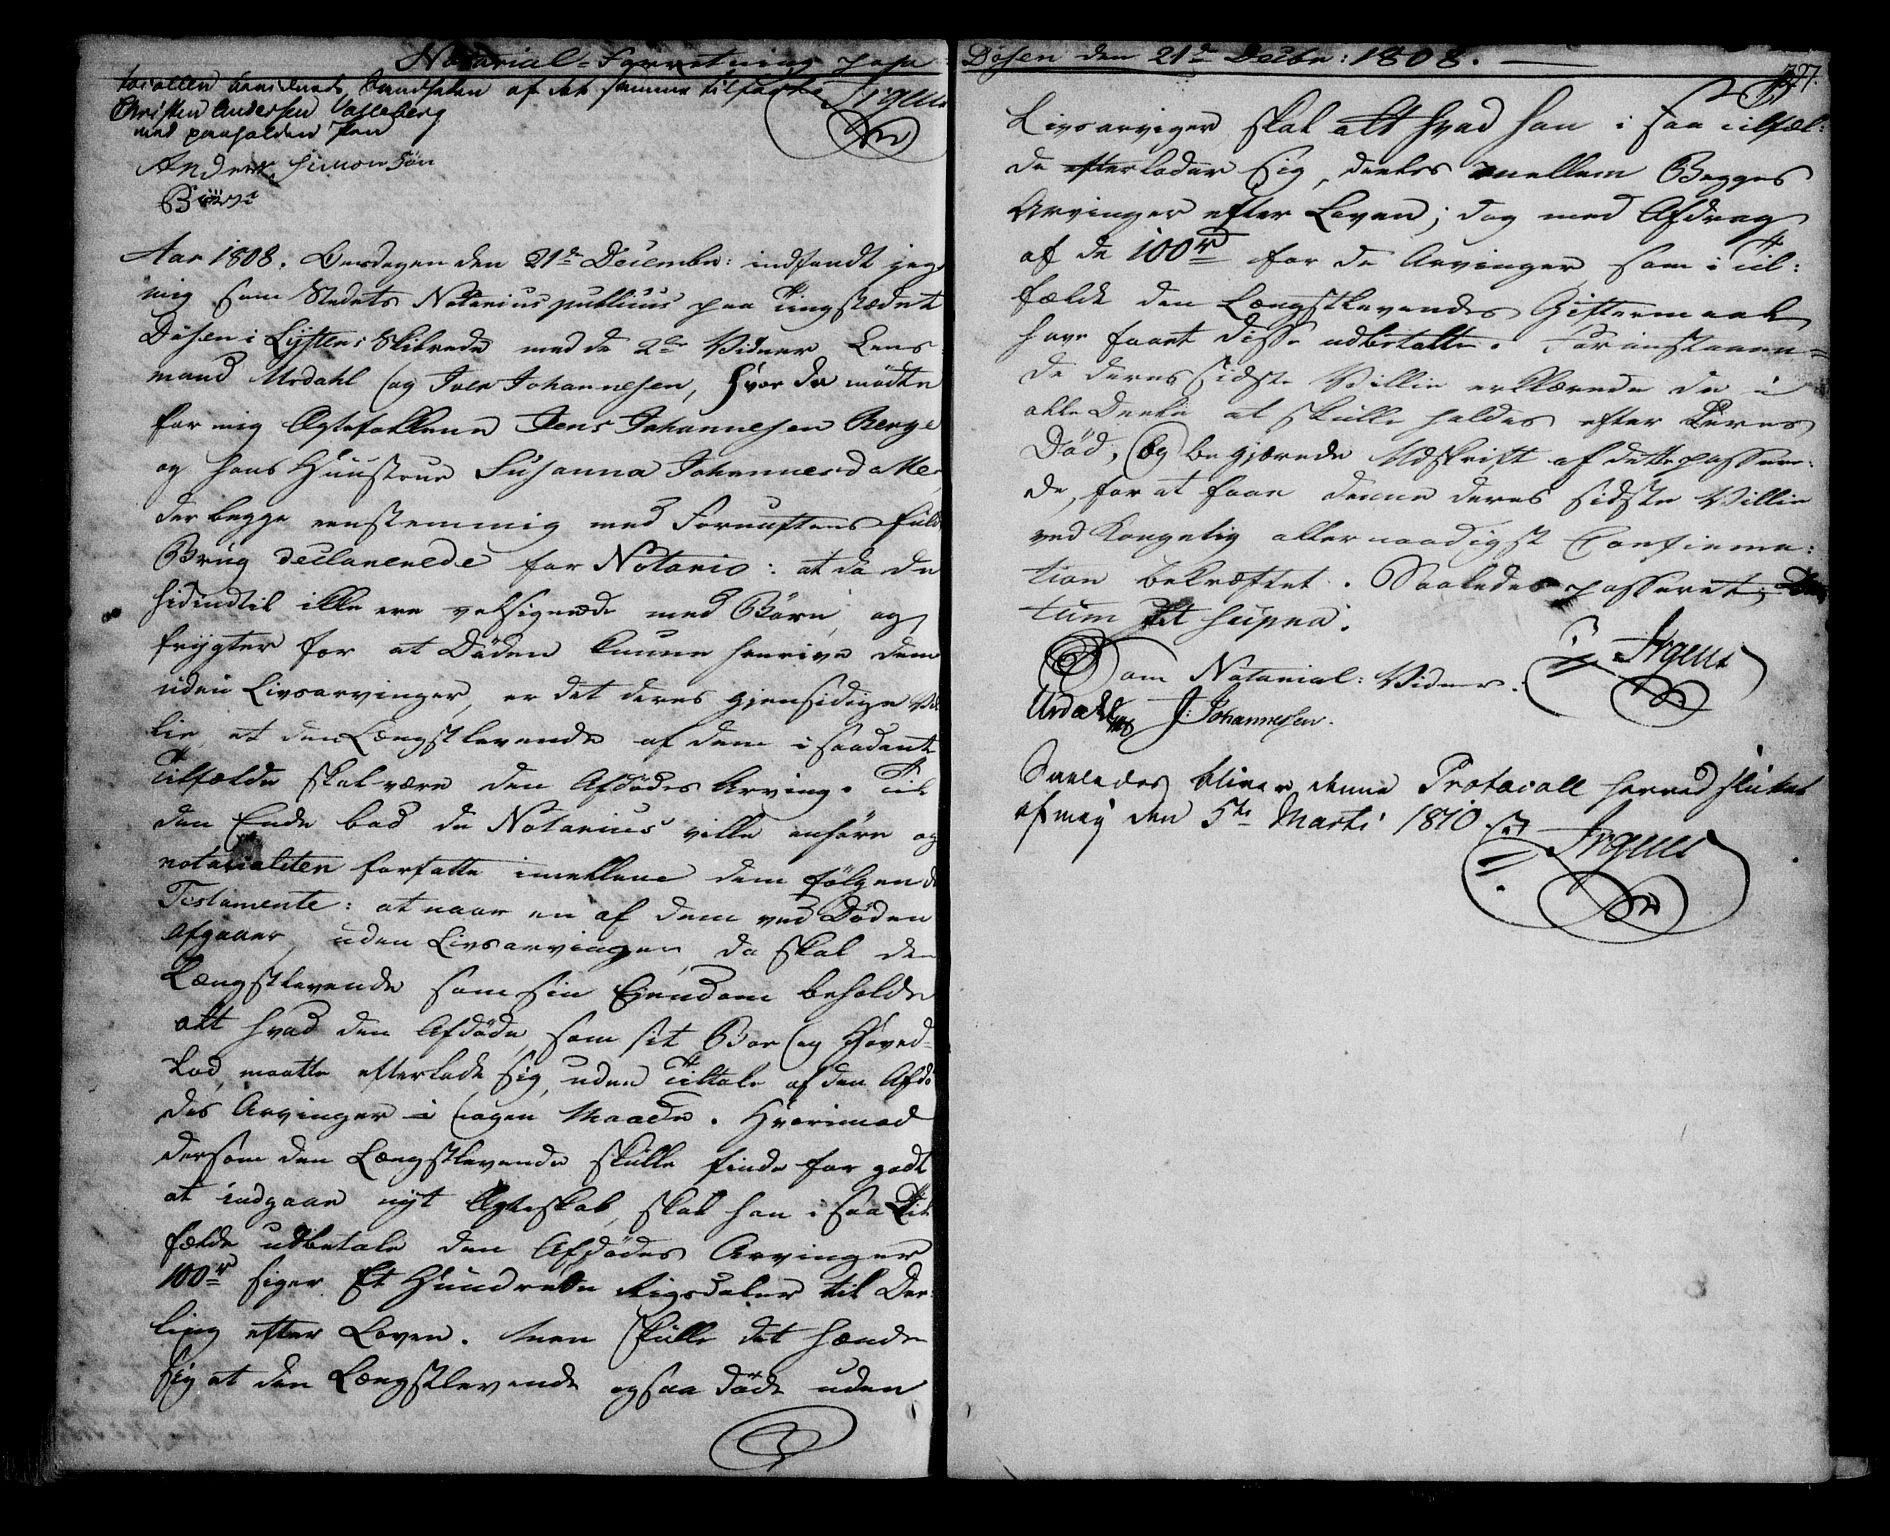 Notarial-Forretning paa
af det samme tilførte Irgens
Christen Andersen Valleberg
med paaholden Pen
Anders Simonsøn
Börve
Aar 1808. Onsdagen den 21de Decembr: indfandt jeg
mig som Stedets Notarius publicus paa Tingstædet
Døsen i Lysters Skibrede med de 2de Vidner Lens-
mand Urdahl og Iver Johannesen, hvor da mødte
for mig Ægtefolkene Jens Johannesen Berge
og hans Huustrue Susanna Johannesd:
der begge eenstemmig med Fornuftens fuld
Brug declarerede for Notario: at da de
hidindtil ikke ere velsignede med Børn, og
frygter for at Døden kunne henrive dem
uden Livsarvinger, er det deres gjensidige Vil
lie, at den Længstlevende af dem i saadant
Tilfælde skal være den Afdødes Arving. Til
den Ende bad de Notarius ville anhøre og
notarialiter forfatte imellem dem følgende
Testamente: at naar en af dem ved Døden
afgaaer uden Livsarvinger, da skal den
Længstlevende som sin Ejendom beholde
alt hvad den Afdøde, som sit Boe og Hoved-
lod, maatte efterlade sig, uden Tiltale af den Afdø
des Arvinger i nogen Maade. Hvorimod
dersom den Længstlevende skulle finde for godt
at indgaae nyt Ægteskab, skal han i saa Til
fælde udbetale den Afdødes Arvinger
100rd siger Et Hundrede Rigsdaler til De-
ling efter Loven. Men skulle det hænde
sig at den Længstlevende ogsaa døde uden
Døsen den 21de Decbr: 1808.
397.
Livsarvinger, skal alt hvad han i saa Tilfæl:
de efterlader sig, deeles mellem Begges
Arvinger efter Loven; dog med Afdrag
af de 100rd for de Arvinger som i Til:
fælde den Længstlevendes Giftermaal
have faaet disse udbetalte. Foranstaaen=
de deres sidste Villie erklærede de i
alle Deele at skulle holdes efter Deres
Død, og begjærede Udskrift af dette passere:
de, for at faae denne deres sidste Villie
ved Kongelig allernaadigst Confirma:
tion bekræftet. Saaledes passeret, Da
tum ut supra.
Irgens
Som Notarial: Vidner.
Urdahl J: Johannesen.
Saaledes bliver denne Protocoll herved sluttet
af mig den 5te Marti 1810.
Irgens